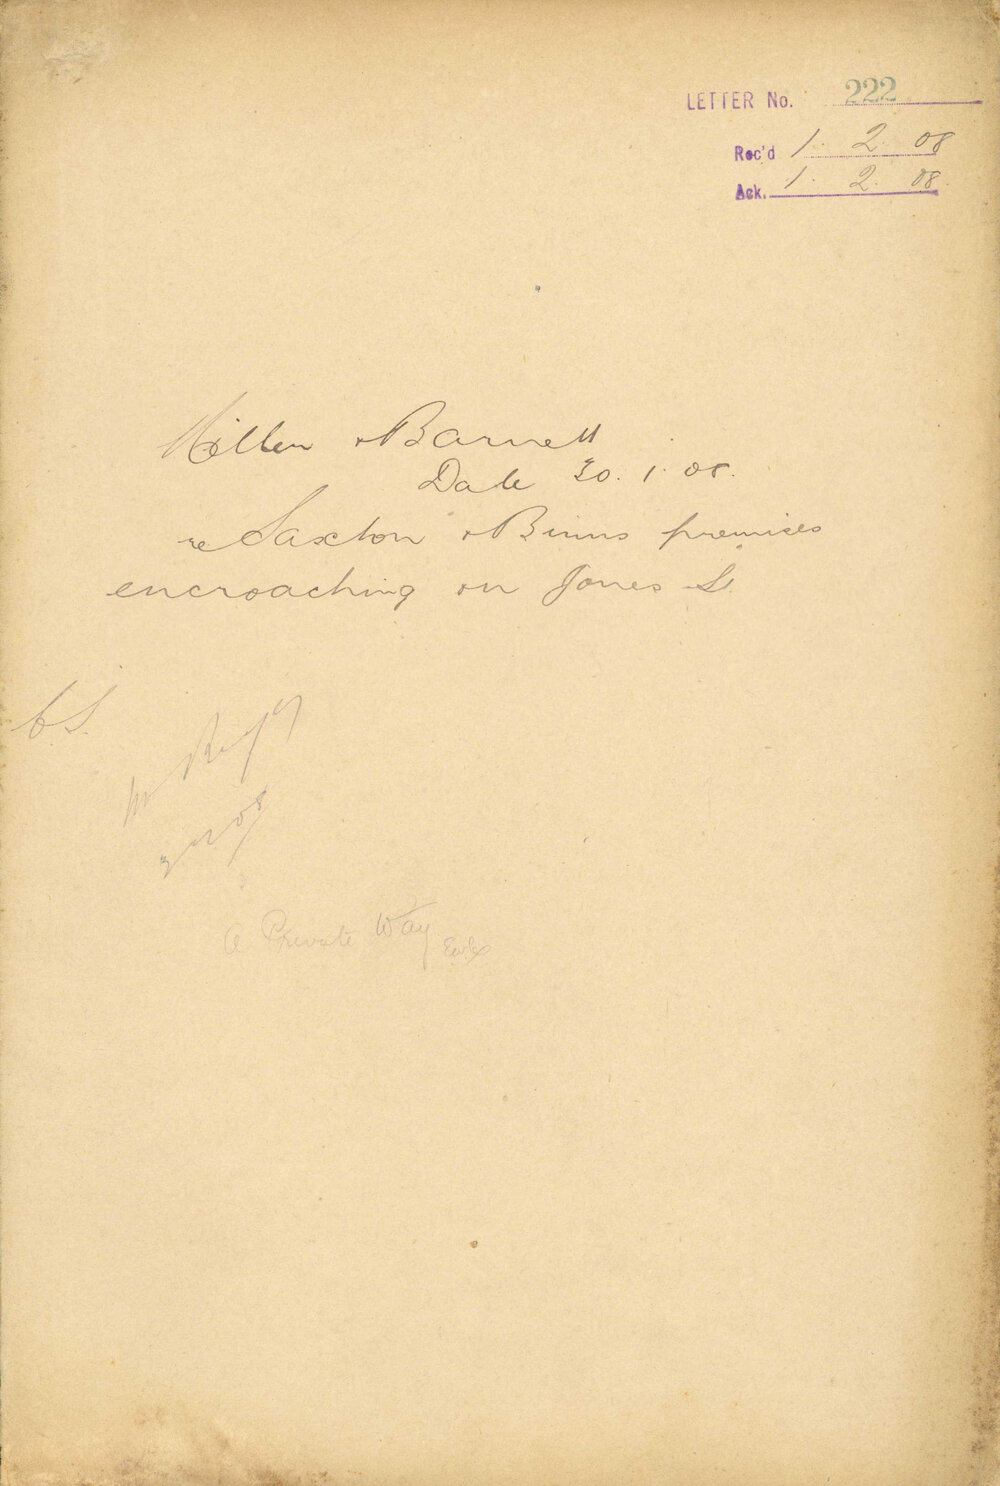 LETTER No. 222
Rec'd 1. 2. 08
Ack. 1. 2. 08.
Hillen & Barnett
Date 30. 1. 08.
re Saxton & Binns premises
encroaching on Jones St.
C.S.
Mr
3/2/08
A Private Way